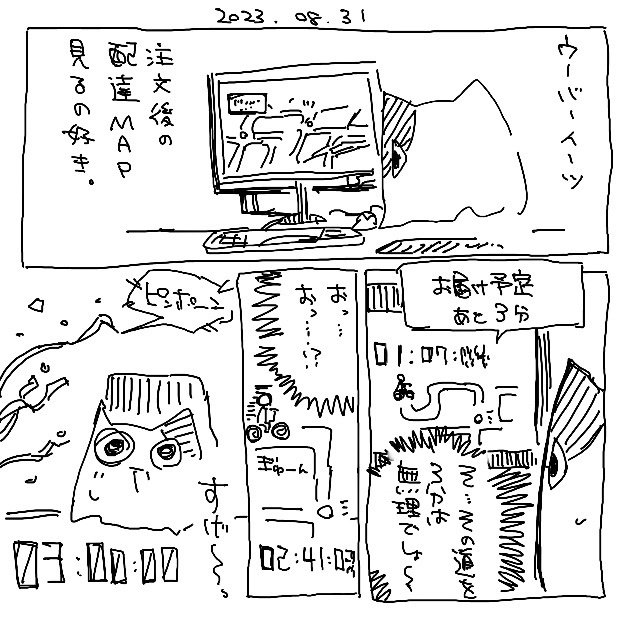 2023.08.31
ウーバーイーツ
注文後の
配達MAP
見るの好き。
お届け予定
あと3分
01:07:
3分は
無理でしょ〜
おっ…
おっ……!?
ぎゅーん
02:41:03
ピンポーン
すげ〜〜。
03:00:00